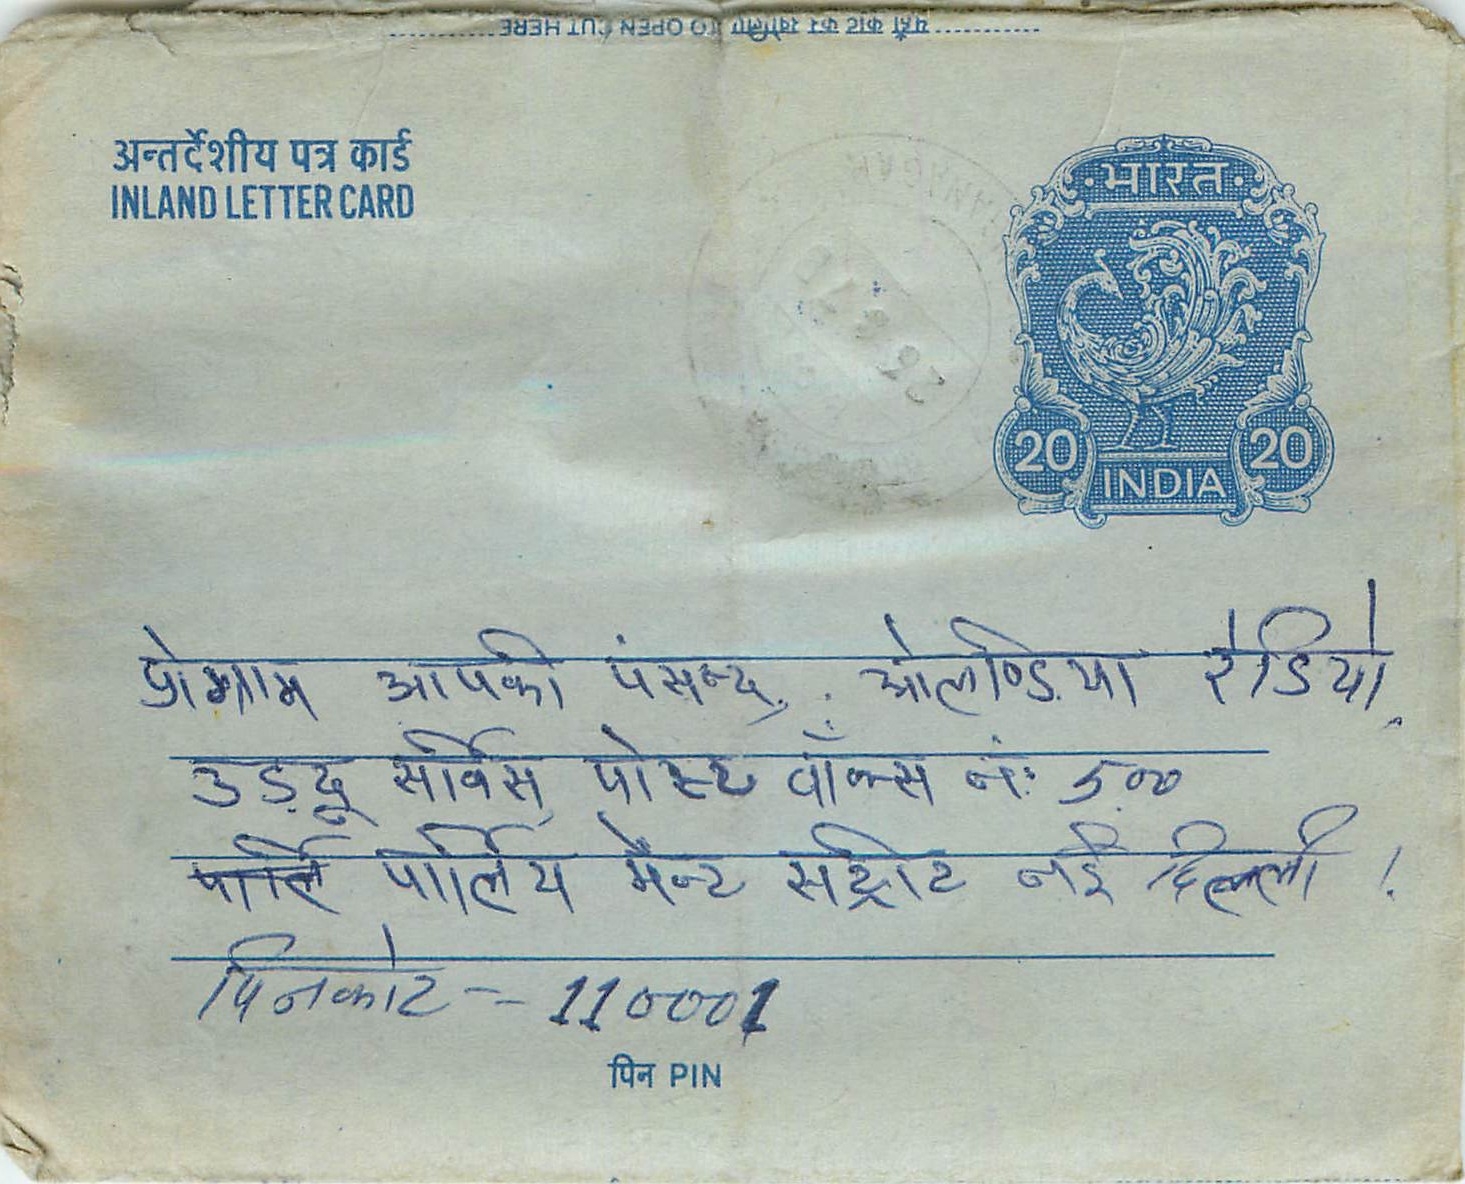 यहाँ काट कर खोलिए TO OPEN CUT HERE
अन्तर्देशीय पत्र कार्ड
INLAND LETTER CARD
भारत
20 20
INDIA
प्रोग्राम आपकी पंसन्द, ओलण्डिया रेडियो,
उड़दू सर्विस पोस्ट वॉक्स नं: 500
पार्लि पार्लिय मेन्ट सट्रीट नई दिल्ली !
पिनकोट -- 110001
पिन PIN